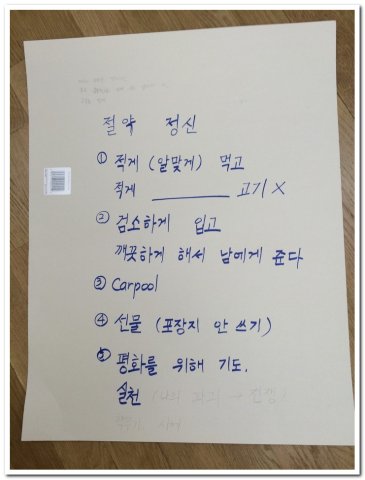 절약 정신
① 적게 (알맞게) 먹고
적게 ________ 고기 X
② 검소하게 입고
깨끗하게 해서 남에게 준다
③ Carpool
④ 선물 (포장지 안 쓰기)
⑤ 평화를 위해 기도.
실천 (나의 → 전쟁)